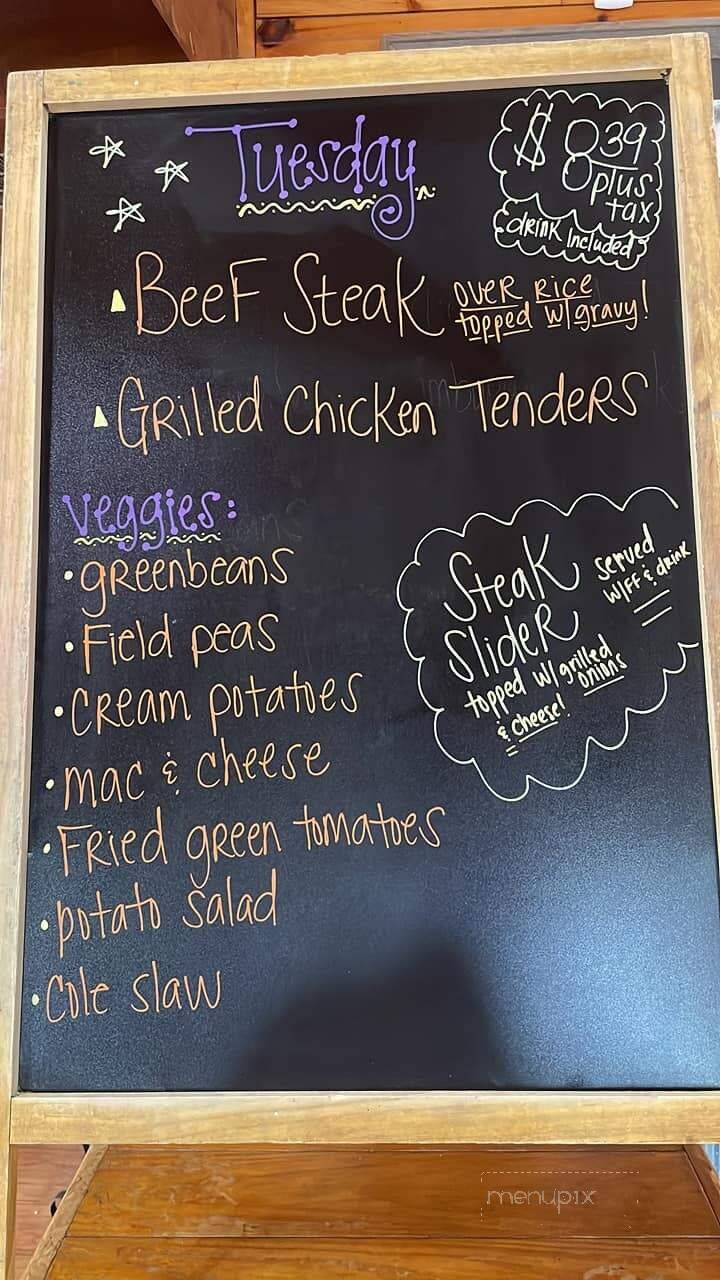 Tuesday
$ 8.39
plus
tax
drink Included
Beef Steak over Rice
topped w/gravy!
Grilled Chicken Tenders
Veggies:
• greenbeans
• Field peas
• Cream potatoes
• mac & cheese
• Fried green tomatoes
• potato salad
• Cole slaw
Steak
Slider
served
w/FF & drink
topped w/grilled
onions
& cheese!
menupix